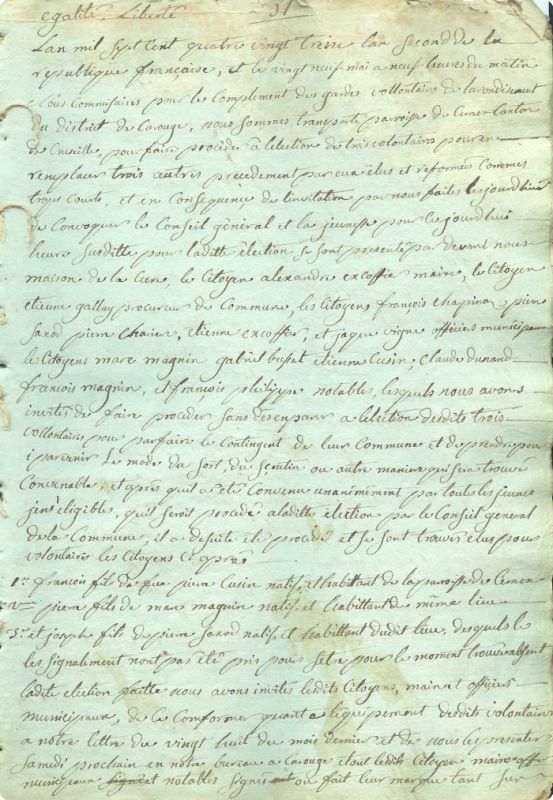 egalité. Liberté 31
Lan mil sept cent quatre vingt treise lan second de la
republique française, et le vingt neuf mai a neuf heures du matin
Nous Commissaires pour le complement des gardes vollontaires de larondissement
du district de Carouge, nous sommes transporté paroisse de Cernex Canton
de Cruseille pour faire procéder à lelection de trois volontaires pour en
remplacer trois autres précédement par eux élus et reformés Commes
trops Courts, et en conséquence de linvitation par nous faites le jourdhier
de Convoquer le Conseil général et la jeunesse pour ce jourdhui
heure susditte pour laditte élection se sont présenté par devant nous
maison de la Cure, le Citoyen alexandre excoffier maire, le Citoyen
etienne gallay procureur de Commune, les Citoyens françois Chapina, pierre
saxod pierre Chatier, etienne excoffier, et jaque vigne officiers municipaux
les Citoyens marc magnin gabriel bussat etienne Cusin, Claude dunand
francois magnin, et francois philippe notables, lesquels nous avons
invités de faire procéder sans désenparer a lelection desdits trois
vollontaires pour parfaire le Contingent de leur Commune et de prendre pour
i parvenir Le mode du sort, du scrutin ou autre maniere qui sera trouvé
Convenable, et après quil a été Convenu unanimément par toute les jeunes
jens éligibles, quil serois procédé a laditte election par le Conseil general
de la Commune, il a de suite été procédé et se sont trouvés élus pour
volontaires les Citoyens Ci après
1.º francois fils de feu pierre Cusin natif, et habittant de la paroisse de Cernex
2.º pierre fils de marc magnin natif et habittant de même lieu
3.º et joseph fils de pierre saxod natif et habittant dudit lieu, desquels le
les signalement nont pas été pris pour Setre pour le moment trouvé absent
ladite election faitte nous avons invités lesdits Citoyens, maire et officiers
municipaux, de ce Comformer quant a léquipement desdits volontaires
a notre lettre du vingt huit du mois dernier et de nous les presenter
Samedi prochain en notre bureau a Carouge et ont lesdits Citoyen maire offi
municipaux et notables signés ou fait leur marque tant sur